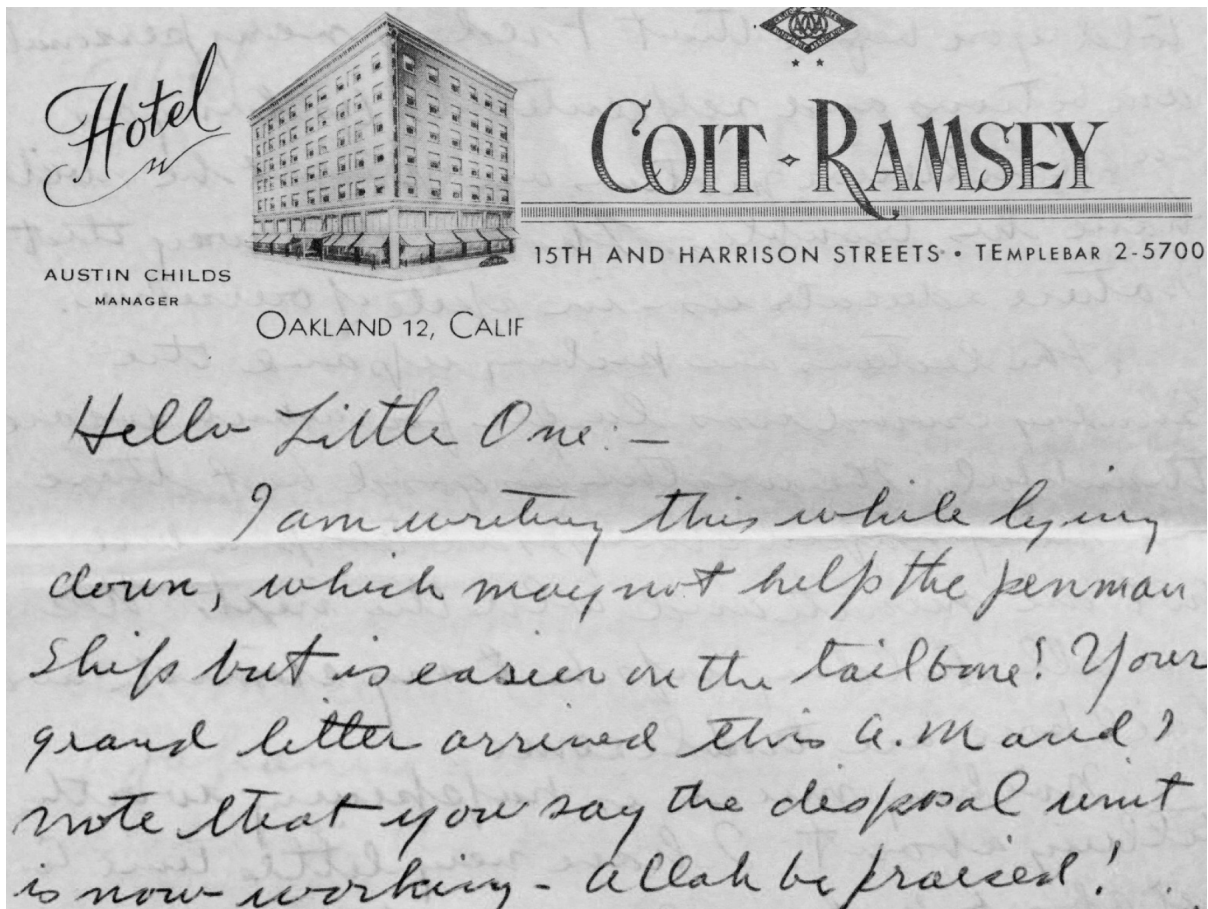 Hotel
COIT · RAMSEY
15TH AND HARRISON STREETS • TEMPLEBAR 2-5700
AUSTIN CHILDS
MANAGER
OAKLAND 12, CALIF
Hello Little One:—
I am writing this while lying
down, which may not help the penman
ship but is easier on the tailbone! Your
grand letter arrived this a.m and I
note that you say the disposal unit
is now working - Allah be praised!